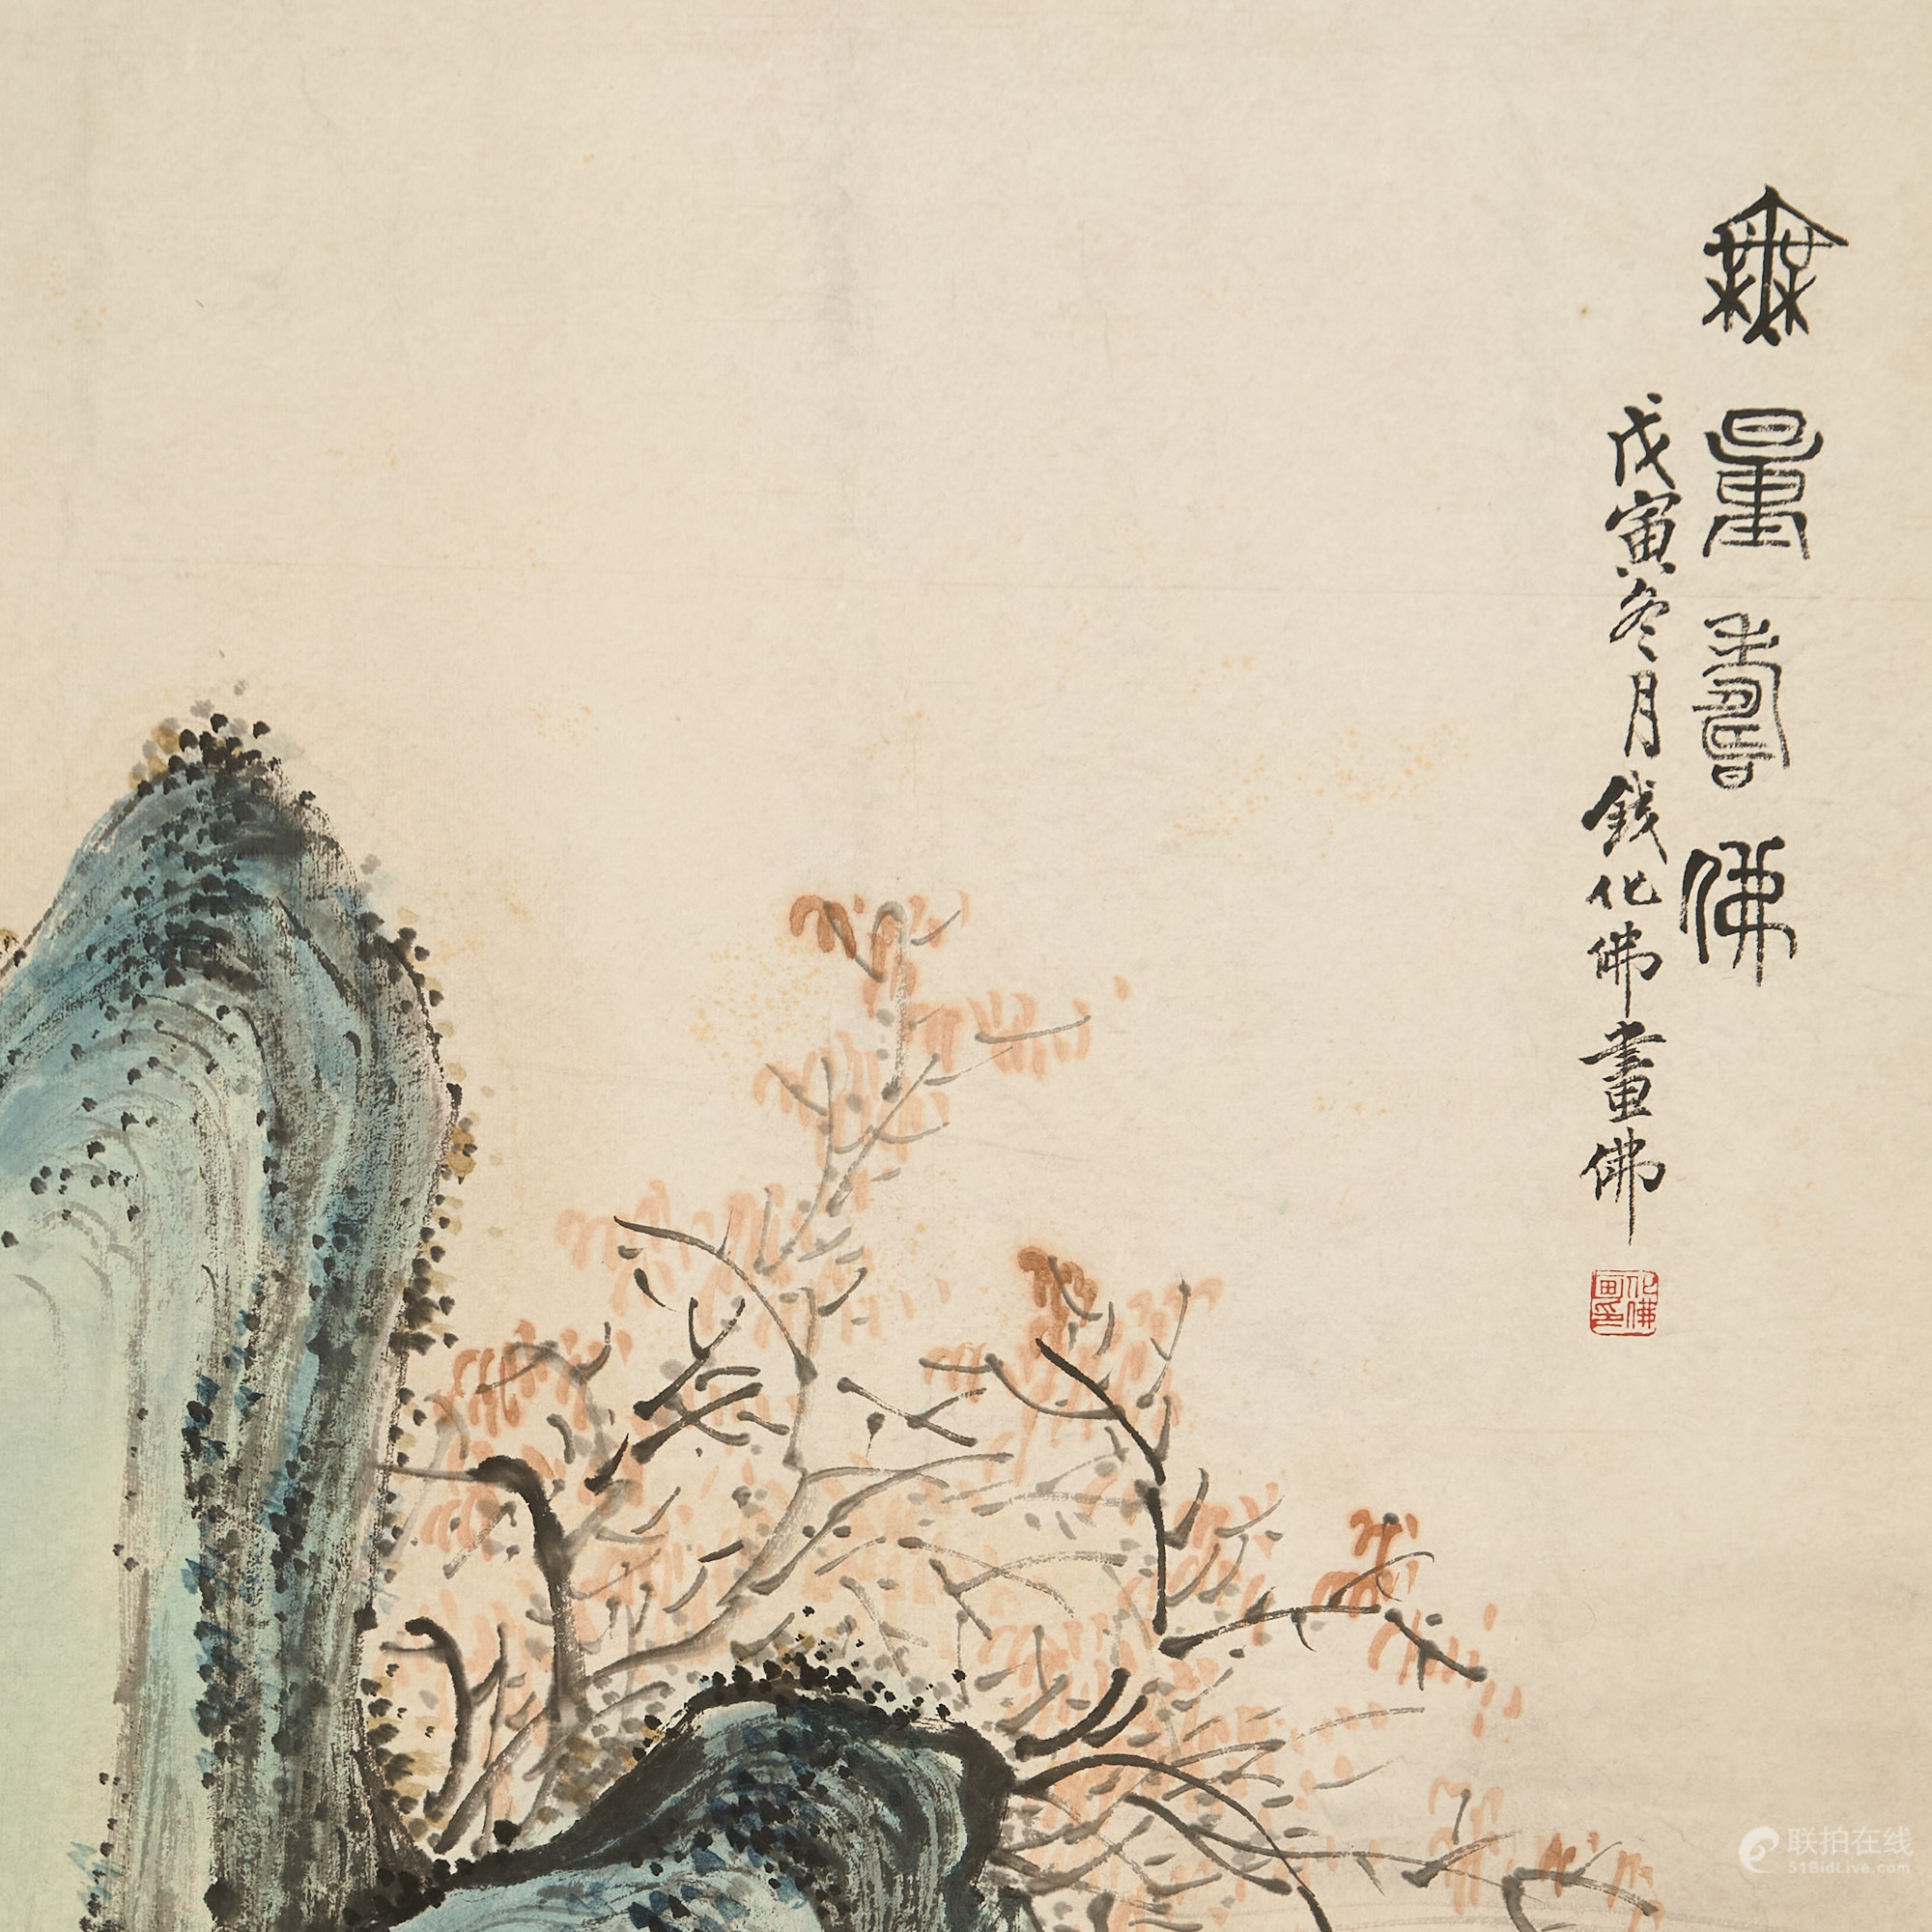 無量壽佛
戊寅冬月錢化佛畫佛
化佛
畫印
联拍在线
51BidLive.com